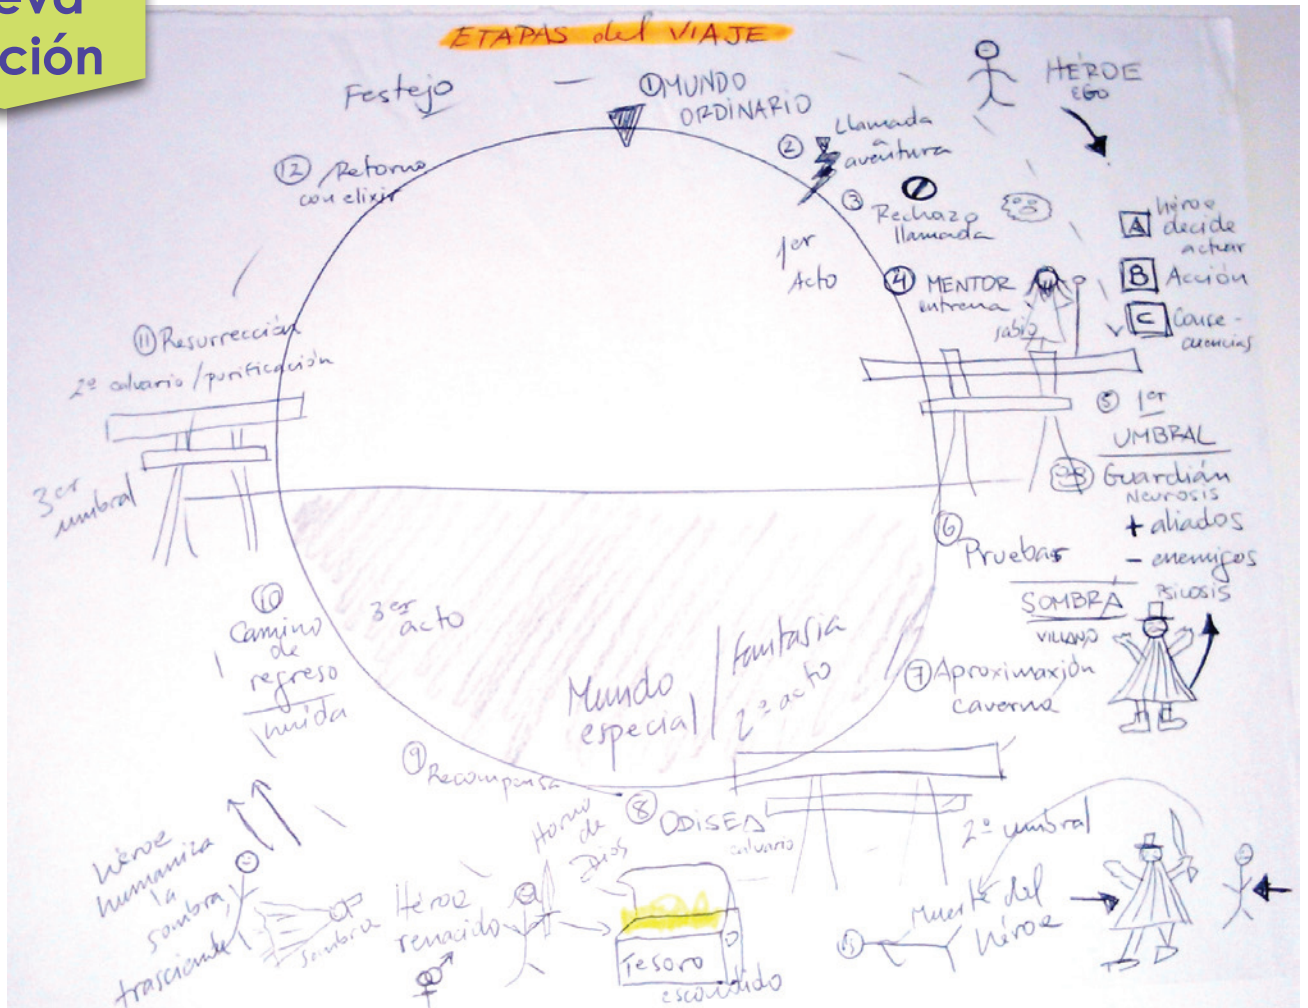 eva
ción
ETAPAS del VIAJE
Festejo
① MUNDO
ORDINARIO
HÉROE
EGO
② Llamada
a
aventura
③ Rechazo
llamada
1er
Acto
④ MENTOR
entrena
sabio
A héroe
decide
actuar
B Acción
C Conse-
cuencias
⑤ 1er
UMBRAL
Guardián
Neurosis
+ aliados
- enemigos
Psicosis
⑥
Pruebas
SOMBRA
VILLANO
⑦ Aproximaxión
caverna
2º umbral
⑧ ODISEA
calvario
Muerte del
héroe
Mundo
especial
fantasia
2º acto
Tesoro
escondido
Horno
de
Dios
Héroe
renacido
⑨ Recompensa
héroe
humaniza
la
sombra,
trasciende
sombra
3er
acto
⑩
Camino
de
regreso
huida
3er
umbral
⑪ Resurrección
2º calvario / purificación
⑫ Retorno
con elixir